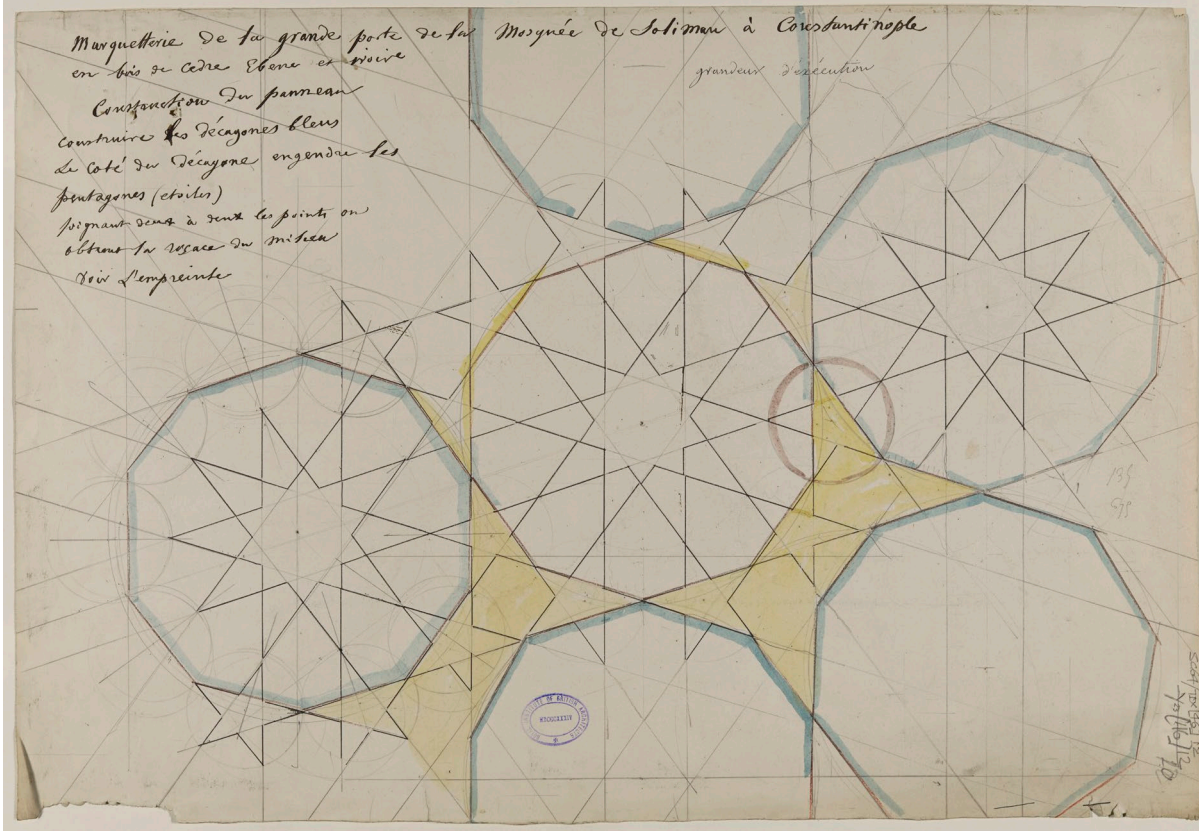 Marquetterie de la grande porte de la Mosquée de Soliman à Constantinople
en bois de Cèdre Ebène et ivoire
grandeur d'exécution
Construction du panneau
construire les décagones bleus
Le Coté du Décagone engendre les
pentagones (etoiles)
joignant deux à deux les points on
obtient la rosace du milieu
voir L'empreinte